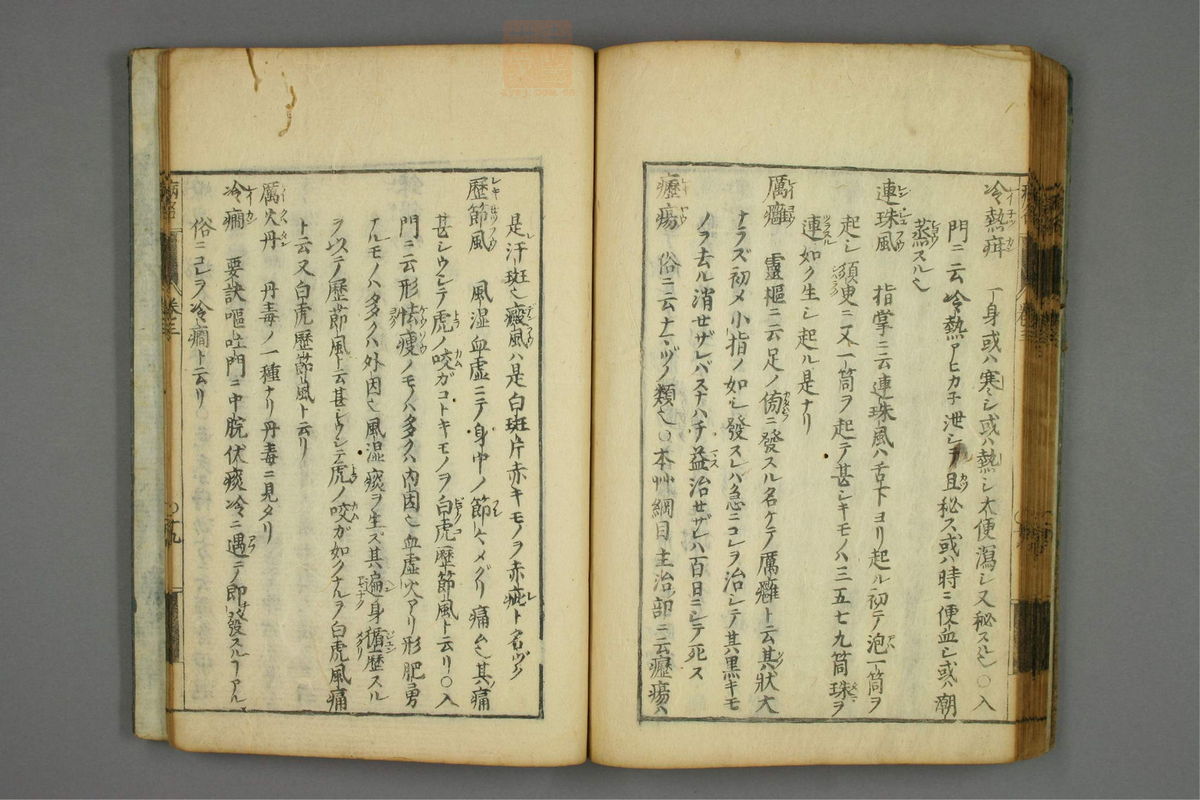 冷熱疳 一身或ハ寒シ或ハ熱シ大便瀉シ又秘スル也○入
門ニ云冷熱アヒカチ泄シテ且秘ス或ハ時ニ便血シ或ハ潮
蒸スル也
連珠風 指掌ニ云連珠風ハ舌下ヨリ起ル初テ泡一箇ヲ
起シ須臾ニ又一箇ヲ起テ甚シキモノハ三五七九箇珠ヲ
連如ク生シ起ル是ナリ
厲癰 靈樞ニ云足ノ傍ニ發スル名ケテ厲癰ト云其狀大
ナラズ初メ小指ノ如シ發スレハ急ニコレヲ治シテ其黒キモ
ノヲ去ル消せザレバスナハチ益治せザレハ百日ニシテ死ス
癧瘍 俗ニ云ナマヅノ類也○本艸綱目主治部ニ云癧瘍ハ
是汗斑也癜風ハ是白斑片赤キモノヲ赤疵ト名ヅク
歷節風 風湿血虚ニテノ身中ノ節ヘメグリ痛ム也其痛
甚シウシテ虎ノ咬ガコトキモノヲ白虎歷節風ト云リ○入
門ニ云形怯痩ノモノハ多クハ内因也血虚火アリ形肥勇
ナルモノハ多クハ外因也風湿痰ヲ生ズ其遍身循歷スル
ヲ以テ歷節風ト云甚シウシテ虎ノ咬ガ如クナルヲ白虎風痛
ト云又白虎歷節風ト云リ
厲火丹 丹毒ノ一種ナリ丹毒ニ見タリ
冷癇 要訣嘔吐門ニ中脘伏痰冷ニ遇テ即發スルヿアル
俗ニコレヲ冷癇ト云リ
卷三